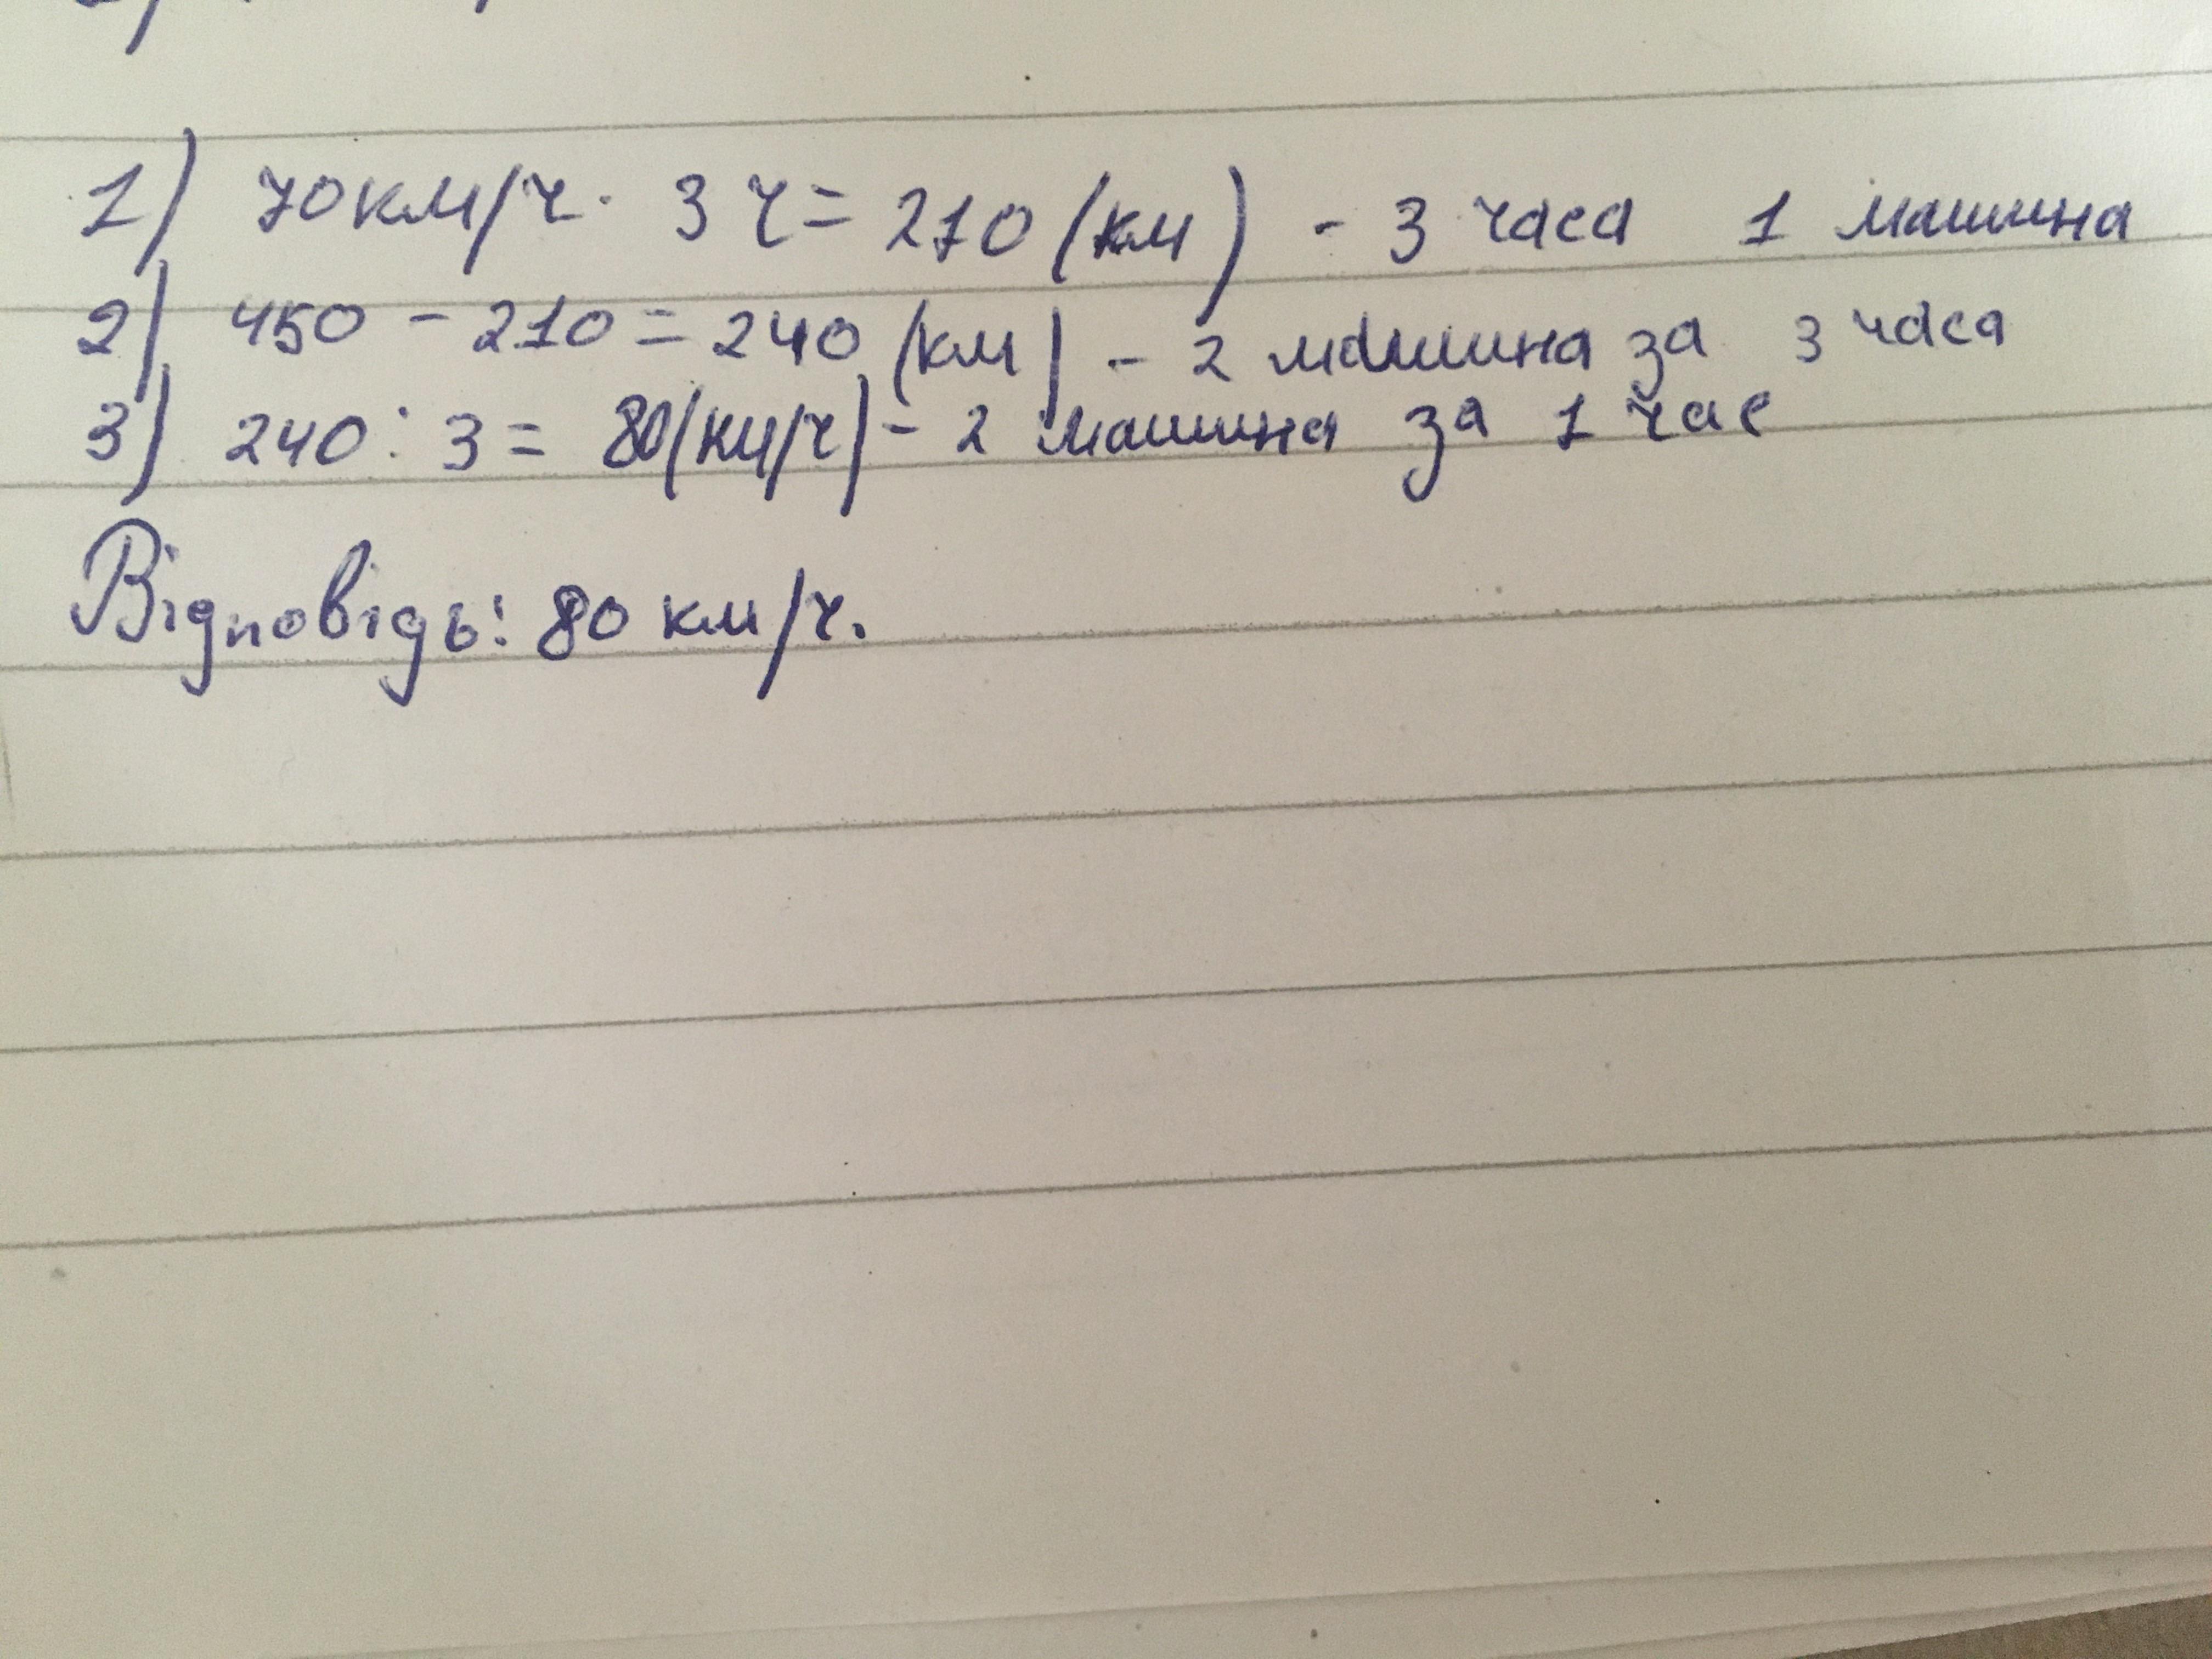 1) 70км/ч · 3 ч = 210 (км) - 3 часа 1 машина
2) 450 - 210 = 240 (км) - 2 машина за 3 часа
3) 240 : 3 = 80(км/ч) - 2 машина за 1 час
Відповідь: 80 км/ч.